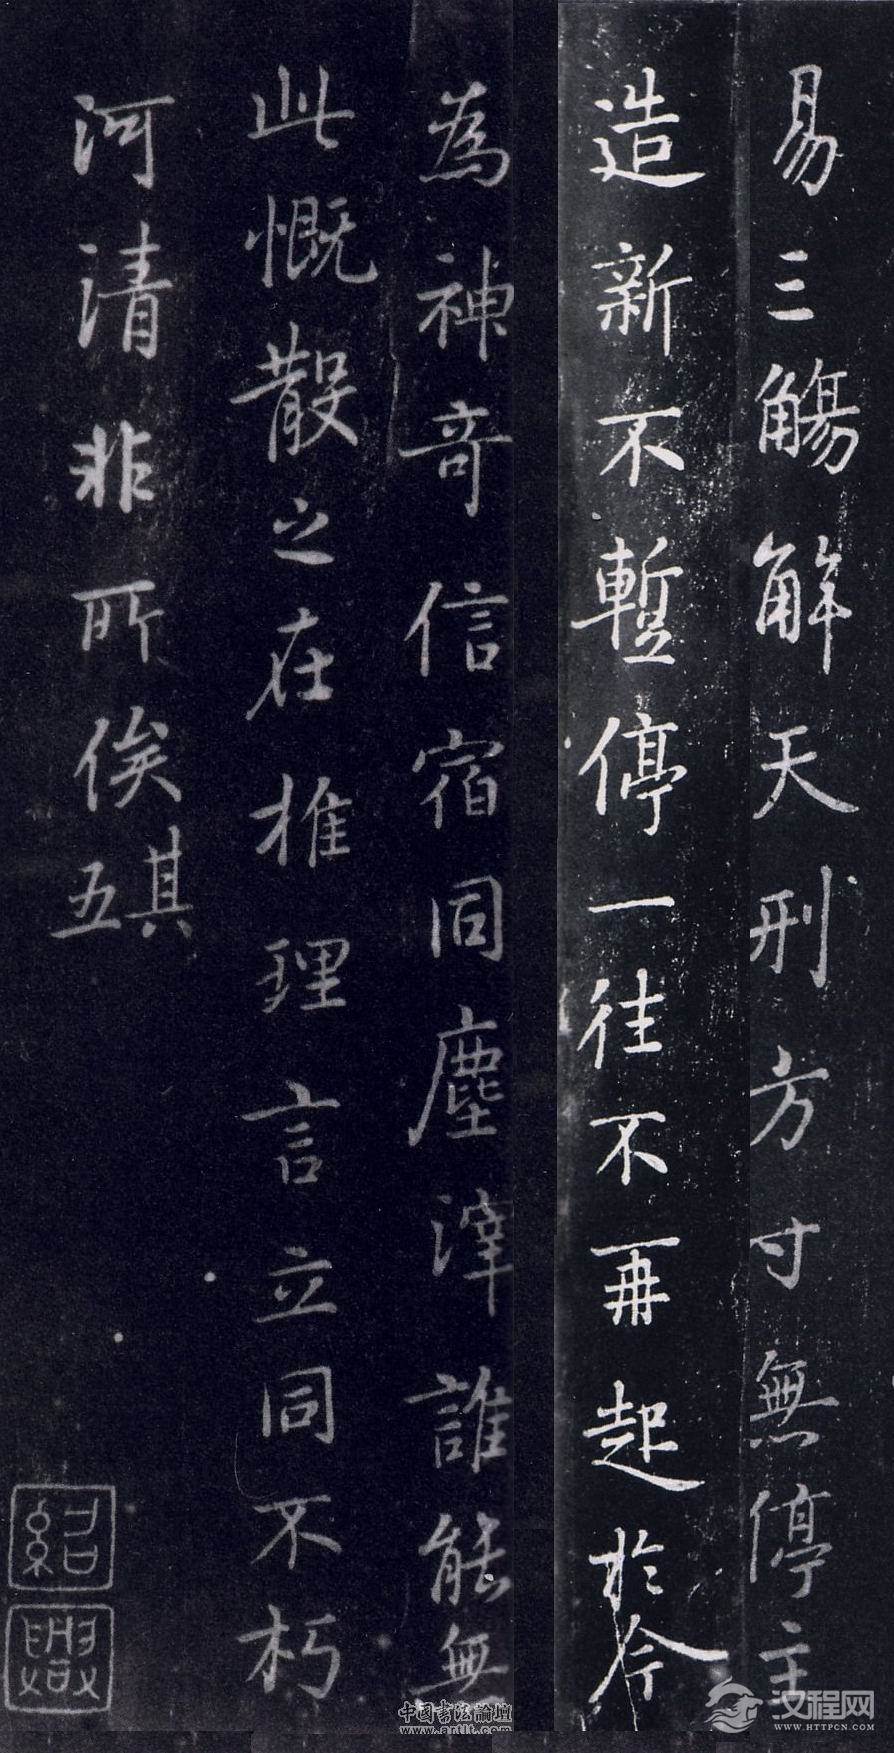 易三觴解天刑方寸無停主
造新不暫停一往不再起於今
為神奇信宿同塵滓誰能無
此慨散之在推理言立同不朽
河清非所俟其五
紹興
中国书法論壇
www.artlt.com
汉程网
WWW.HTTPCN.COM